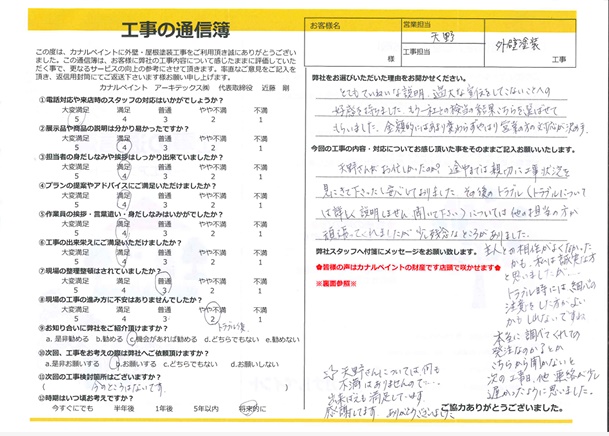 工事の通信簿
この度は、カナルペイントに外壁・屋根塗装工事をご利用頂き誠にありがとうござい
ました。この通信簿は、お客様に弊社の工事内容について感じたままに評価していた
だく事で、更なるサービスの向上の参考にさせて頂きます。率直なご意見をご記入を
頂き、返信用封筒にてご返送下さいます様お願い申し上げます。
カナルペイント アーキテックス㈱ 代表取締役 近藤 剛
①電話対応や来店時のスタッフの対応はいかがでしょうか?
大変満足 満足 普通 やや不満 不満
5 4 3 2 1
②展示品や商品の説明は分かり易かったですか?
大変満足 満足 普通 やや不満 不満
5 4 3 2 1
③担当者の身だしなみや挨拶はしっかり出来ていましたか?
大変満足 満足 普通 やや不満 不満
5 4 3 2 1
④プランの提案やアドバイスにご満足いただけましたか?
大変満足 満足 普通 やや不満 不満
5 4 3 2 1
⑤作業員の挨拶・言葉遣い・身だしなみはいかがでしたか?
大変満足 満足 普通 やや不満 不満
5 4 3 2 1
⑥工事の出来栄えにご満足いただけましたか?
大変満足 満足 普通 やや不満 不満
5 4 3 2 1
⑦現場の整理整頓はされていましたか?
大変満足 満足 普通 やや不満 不満
5 4 3 2 1
⑧現場の工事の進み方に不安はありませんでしたか?
大変満足 満足 普通 やや不満 不満
5 4 3 2 1
トラブル後
⑨お知り合いに弊社をご紹介頂けますか?
a.是非勧める b.勧める c.機会があれば勧める d.どちらでもない e.勧めない
⑩次回、工事をお考えの際は弊社へご依頼頂けますか?
a.是非お願いする b.お願いする c.どちらでもない d.お願いしない
⑪次回の工事検討箇所はございますか?
( 今のところはないです )
⑫時期はいつ頃お考えですか?
今すぐにでも 半年後 1年後 5年以内 将来的に
お客様名
様
営業担当
天野
工事担当
外壁塗装
工事
弊社をお選びいただいた理由をお聞かせください。
とてもていねいな説明、過大な宣伝をしてこないことへの
好感を持ちました。もう一社との検討の結果こちらを選ばせて
もらいました。金額的にはあまり変わらずやはり営業の方の対応が決め手。
今回の工事の内容・対応についてお感じ頂いた事をそのままご記入お願いいたします。
天野さんがお忙しかったのか? 途中までは親切に工事状況を
見にきて下さったし安心しておりました その後のトラブル(トラブルについて
は詳しく説明しません 聞いて下さい)については他の担当の方が
頑張ってくれましたが 少し残念なところがありました。
弊社スタッフへ付箋にメッセージをお願い致します。
◆皆様の声はカナルペイントの財産です店頭で咲かせます◆
※裏面参照※
主人との相性がよくなかった
かも、私は誠実な方
と思いましたが…
トラブル時には細心の
注意をした方がよい
かもしれないですね
本当に調べてくれての
発注なのかとか
こちらから聞かないと
次の工事日、他 連絡が少し
遅かったように思いました。
☆ 天野さんについては何も
不満はありませんので…
出来ばえも満足しています
感謝してます。ありがとうございました
ご協力ありがとうございました。